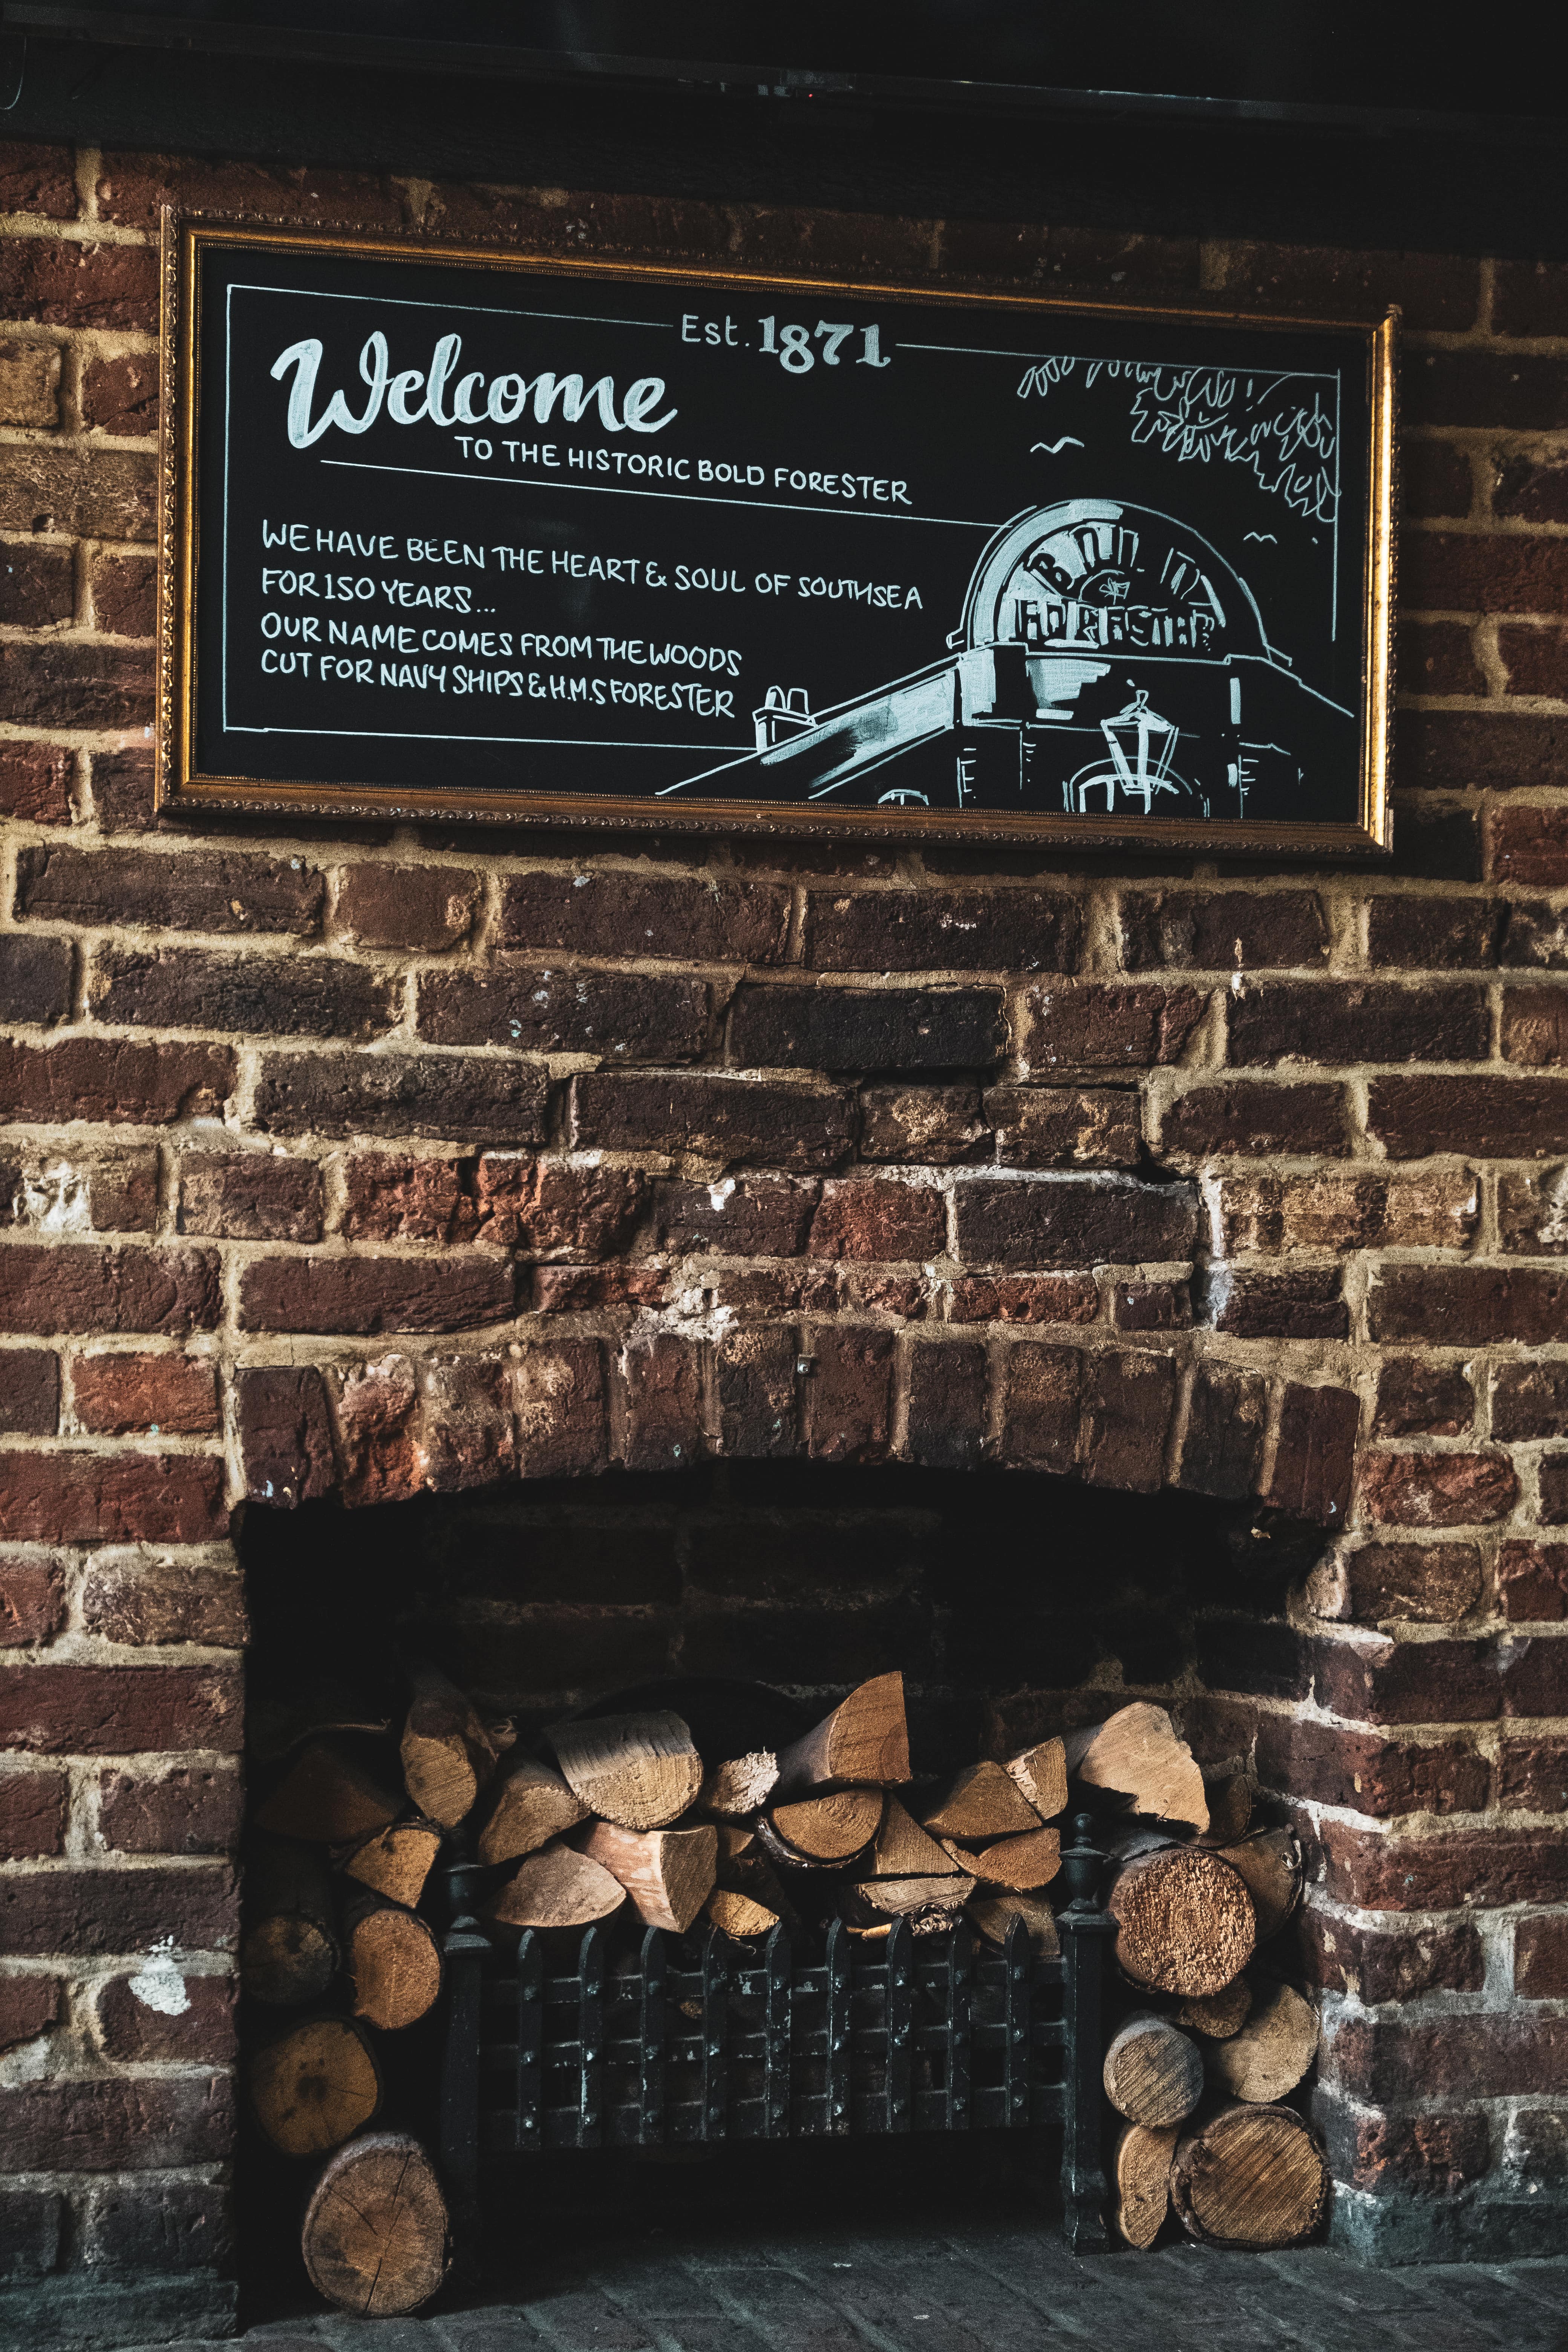 Est. 1871
Welcome
TO THE HISTORIC BOLD FORESTER
WE HAVE BEEN THE HEART & SOUL OF SOUTHSEA
FOR 150 YEARS...
OUR NAME COMES FROM THE WOODS
CUT FOR NAVY SHIPS & H.M.S FORESTER
BOLD
FORESTER